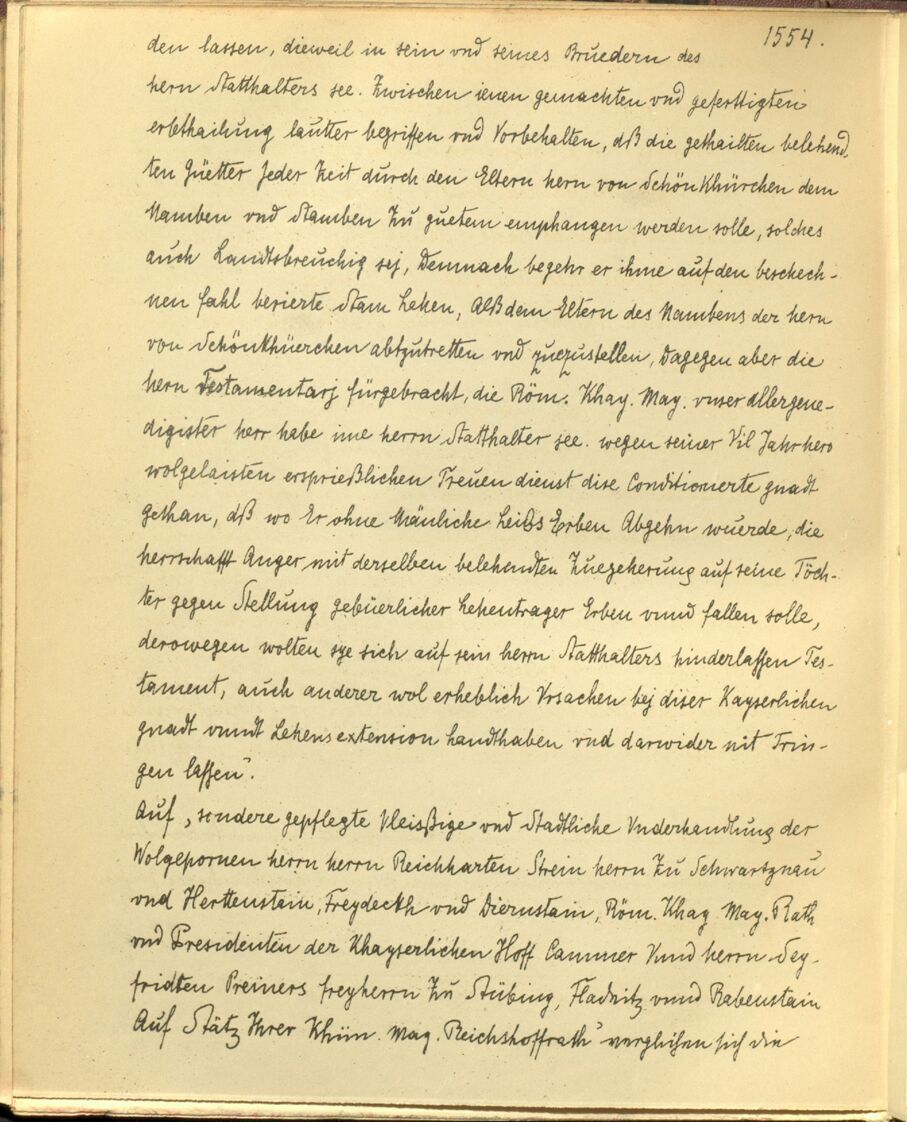 1554.
den lassen, dieweil in sein vnd seines Bruedern des
hern Statthalters see. Zwischen ienen gemachten vnd geferttigten
erbthailung lautter begriffen vnd Vorbehalten, dß die gethailten belehend,
ten Güetter Jeder Zeit durch den Eltern hern von Schönkhürchen dem
Namben vnd Stamben Zu guetem emphangen werden solle, solches
auch Landtsbreuchig sej, Demnach begehr er ihme auf den beschech-
nen fahl berierte Stam Lehen, Alß dem Eltern des Nambens der hern
von Schönkhüerchen abtzutretten vnd zuezustellen, Dagegen aber die
hern Testamentarj fürgebracht, die Röm. Khay. May. vnser allergene-
digister herr habe ime herrn Statthalter see. wegen seiner Vil Jahr hero
wolgelaisten ersprießlichen Treuen dienst dise Conditionerte gnadt
gethan, dß wo Er ohne Mänliche Leibs Erben Abgehn wuerde, die
herrschafft Anger mit derselben belehendten Zuegeherung auf seine Töch-
ter gegen Stellung gebüerlicher Lehentrager Erben vnnd fallen solle,
derowegen wolten sye sich auf sein herrn Statthalters hinderlassen Tes-
tament, auch anderer wol erheblich Vrsachen bej diser Kayserlichen
gnadt vnndt Lehens extension handthaben vnd darwider nit Trin-
gen lassen".
Auf „sondere gepflegte Vleissige vnd Stadtliche Vnderhandlung der
Wolgepornen herrn herrn Reichharten Strein herrn Zu Schwartznau
vnd Herttenstain, Freydeckh vnd Diernstain, Röm. Khay May. Rath
vnd Presidenten der Khayserlichen Hoff Cammer Vnnd herrn Sey-
fridten Preiners freyherrn Zu Stübing, Fladnitz vnnd Rabenstain
Auf Stätz Ihrer Khün. May. Reichshoffrath" verglichen sich die